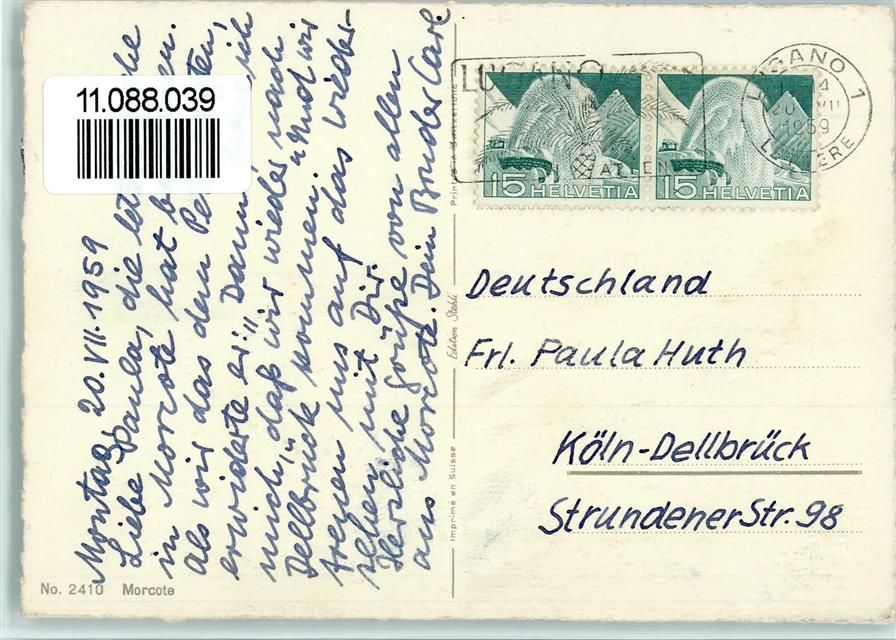 11.088.039
Montag, 20.VII.1959
Liebe Paula, die
in Morcote hat
als wir das dem
erwiderte er: " Dann ich
mich, daß wir wieder nach
Dellbrück kommen. " Und wir
freuen uns auf das Wieder-
sehen mit Dir.
Herzliche Grüße von allen
aus Morcote. Dein Bruder Carl.
No. 2410 Morcote
Imprimé en Suisse
Edition Stehli
Printed in Switzerland
LUGANO
LUGANO 1
20. VII
1959
LETTERE
15 HELVETIA
15 HELVETIA
Deutschland
Frl. Paula Huth
Köln-Dellbrück
Strundener Str. 98